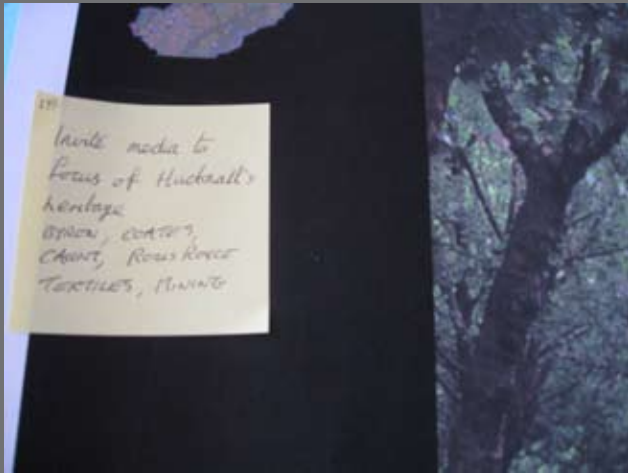 Invite media to
focus of Hucknall's
heritage
BYRON, COATES,
CAUNT, ROLLS ROYCE
TEXTILES, MINING